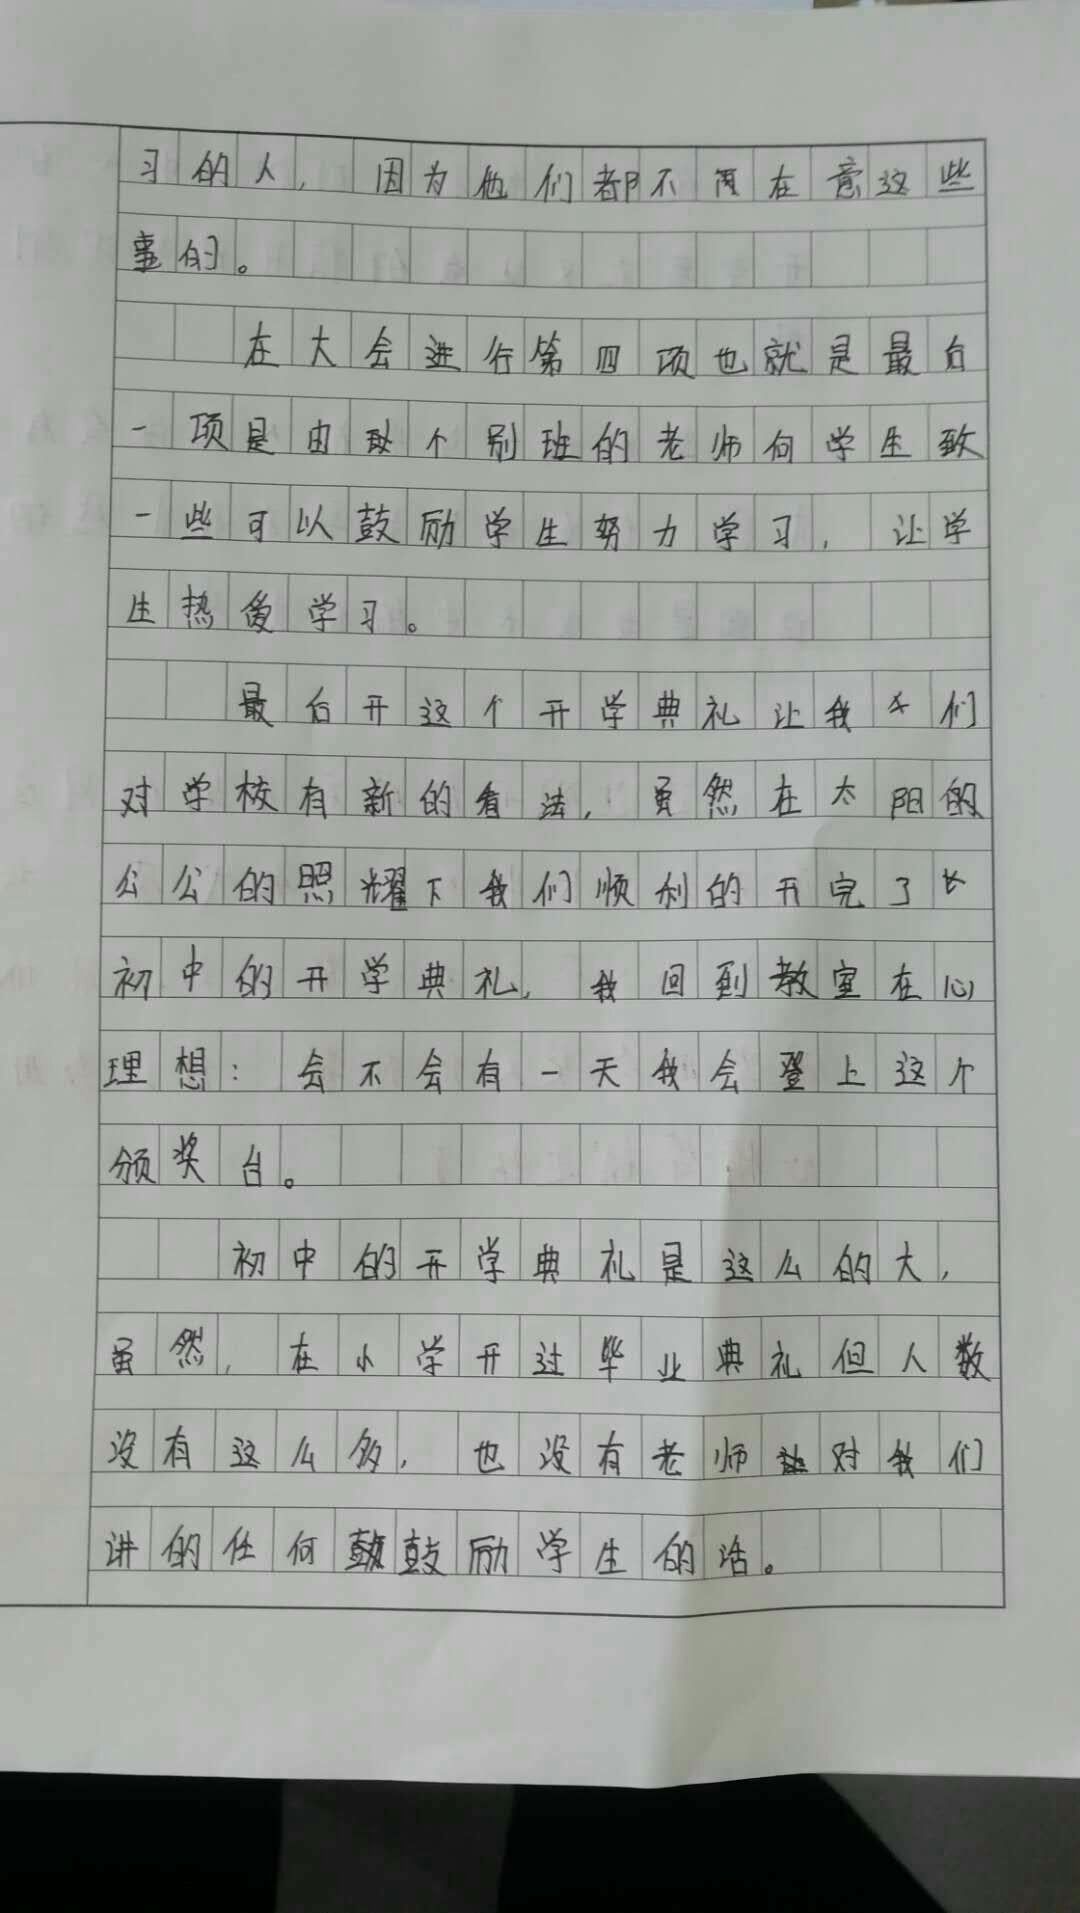 习的人，因为他们都不在意这些
事的。
在大会进行第四项也就是最后
一项是由个别班的老师向学生致
一些可以鼓励学生努力学习，让学
生热爱学习。
最后开这个开学典礼让我们
对学校有新的看法，虽然在太阳的
公公的照耀下我们顺利的开完了
初中的开学典礼，我回到教室在心
理想：会不会有一天我会登上这个
颁奖台。
初中的开学典礼是这么的大，
虽然，在小学开过毕业典礼但人数
没有这么多，也没有老师对我们
讲的任何鼓励学生的话。